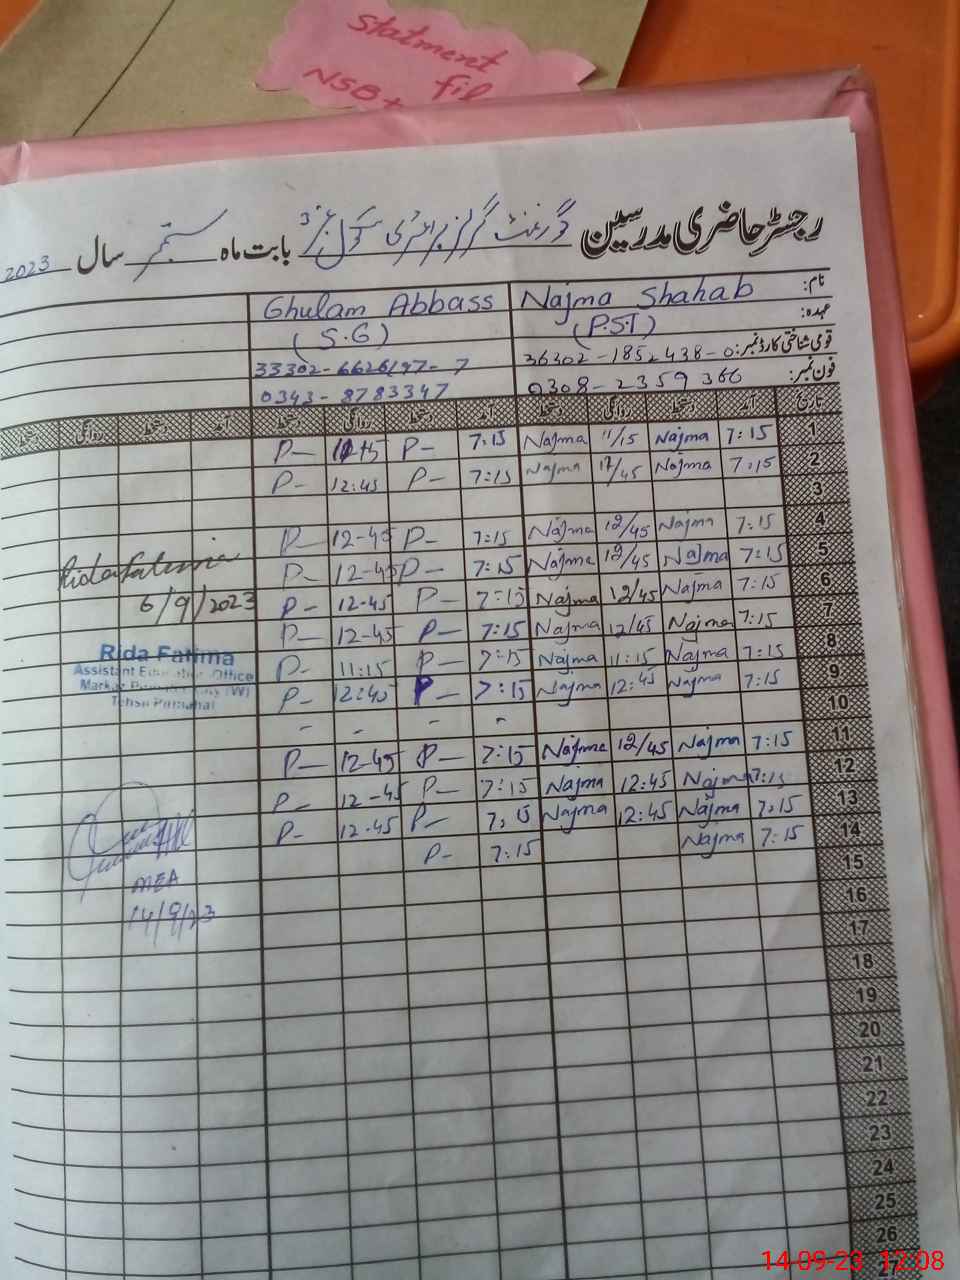 Statment
fil
NSB+
رجسٹر حاضری مدرسین گورنمنٹ گرلز پرائمری سکول بابت ماہ ستمبر سال 2023
نام: Najma Shahab Ghulam Abbass
عہدہ: (P.S.T) (S.G)
قومی شناختی کارڈ نمبر: 36302-1852438-0 33302-6626197-7
فون نمبر: 0308-2359366 0343-8783347
تاریخ آمد دستخط روانگی دستخط آمد دستخط روانگی دستخط آمد دستخط روانگی دستخط
1 7:15 Najma 11/15 Najma 7:15 P- P-
2 7:15 Najma 12/45 Najma 7:15 P- 12:45 P-
3
4 7:15 Najma 12/45 Najma 7:15 P- 12-45 P-
5 7:15 Najma 12/45 Najma 7:15 P- 12-45 P-
6 7:15 Najma 12/45 Najma 7:15 P- 12-45 P-
7 7:15 Najma 12/45 Najma 7:15 P- 12-45 P-
8 7:15 Najma 11:15 Najma 7:15 P- 11:15 P-
9 7:15 Najma 12:45 Najma 7:15 P- 12:45 P-
10 - - - -
11 7:15 Najma 12/45 Najma 7:15 P- 12-45 P-
12 7:15 Najma 12:45 Najma 7:15 P- 12-45 P-
13 7:15 Najma 12:45 Najma 7:15 P- 12-45 P-
14 7:15 Najma 7:15 P-
15
16
17
18
19
20
21
22
23
24
25
26
27
Rida Fatima
6/9/2023
Rida Fatima
Assistant Education Office
Markaz (W)
Tehsil
MEA
14/9/23
14-09-23 12:08